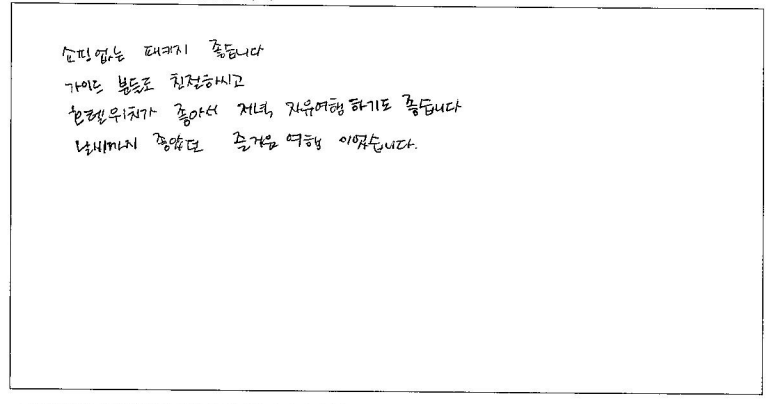 쇼핑없는 패키지 좋습니다
가이드 분들도 친절하시고
호텔위치가 좋아서 저녁, 자유여행하기도 좋습니다
날씨까지 좋았던 즐거운 여행 이었습니다.